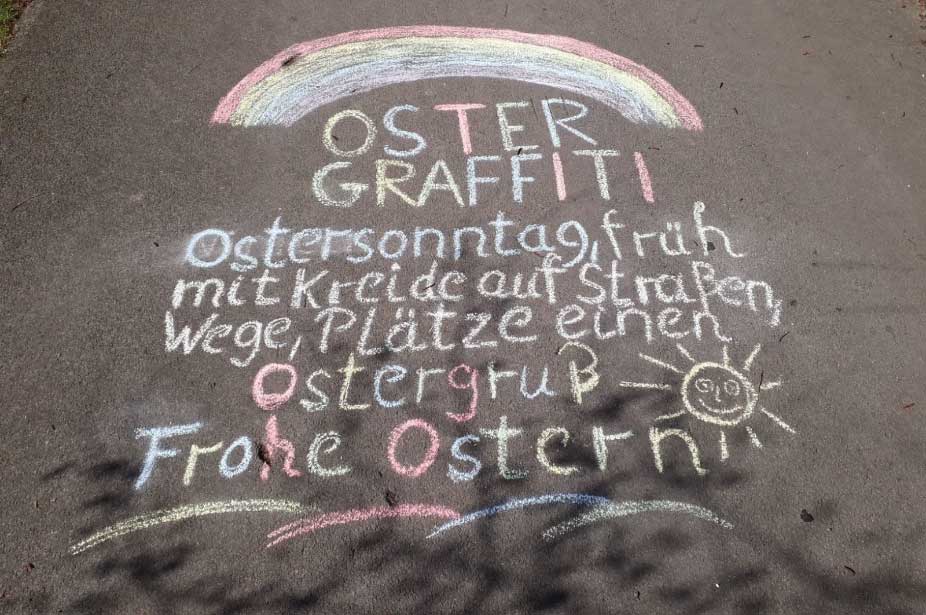 OSTER
GRAFFITI
Ostersonntag, früh
mit Kreide auf Straßen,
Wege, Plätze einen
Ostergruß
Frohe Ostern